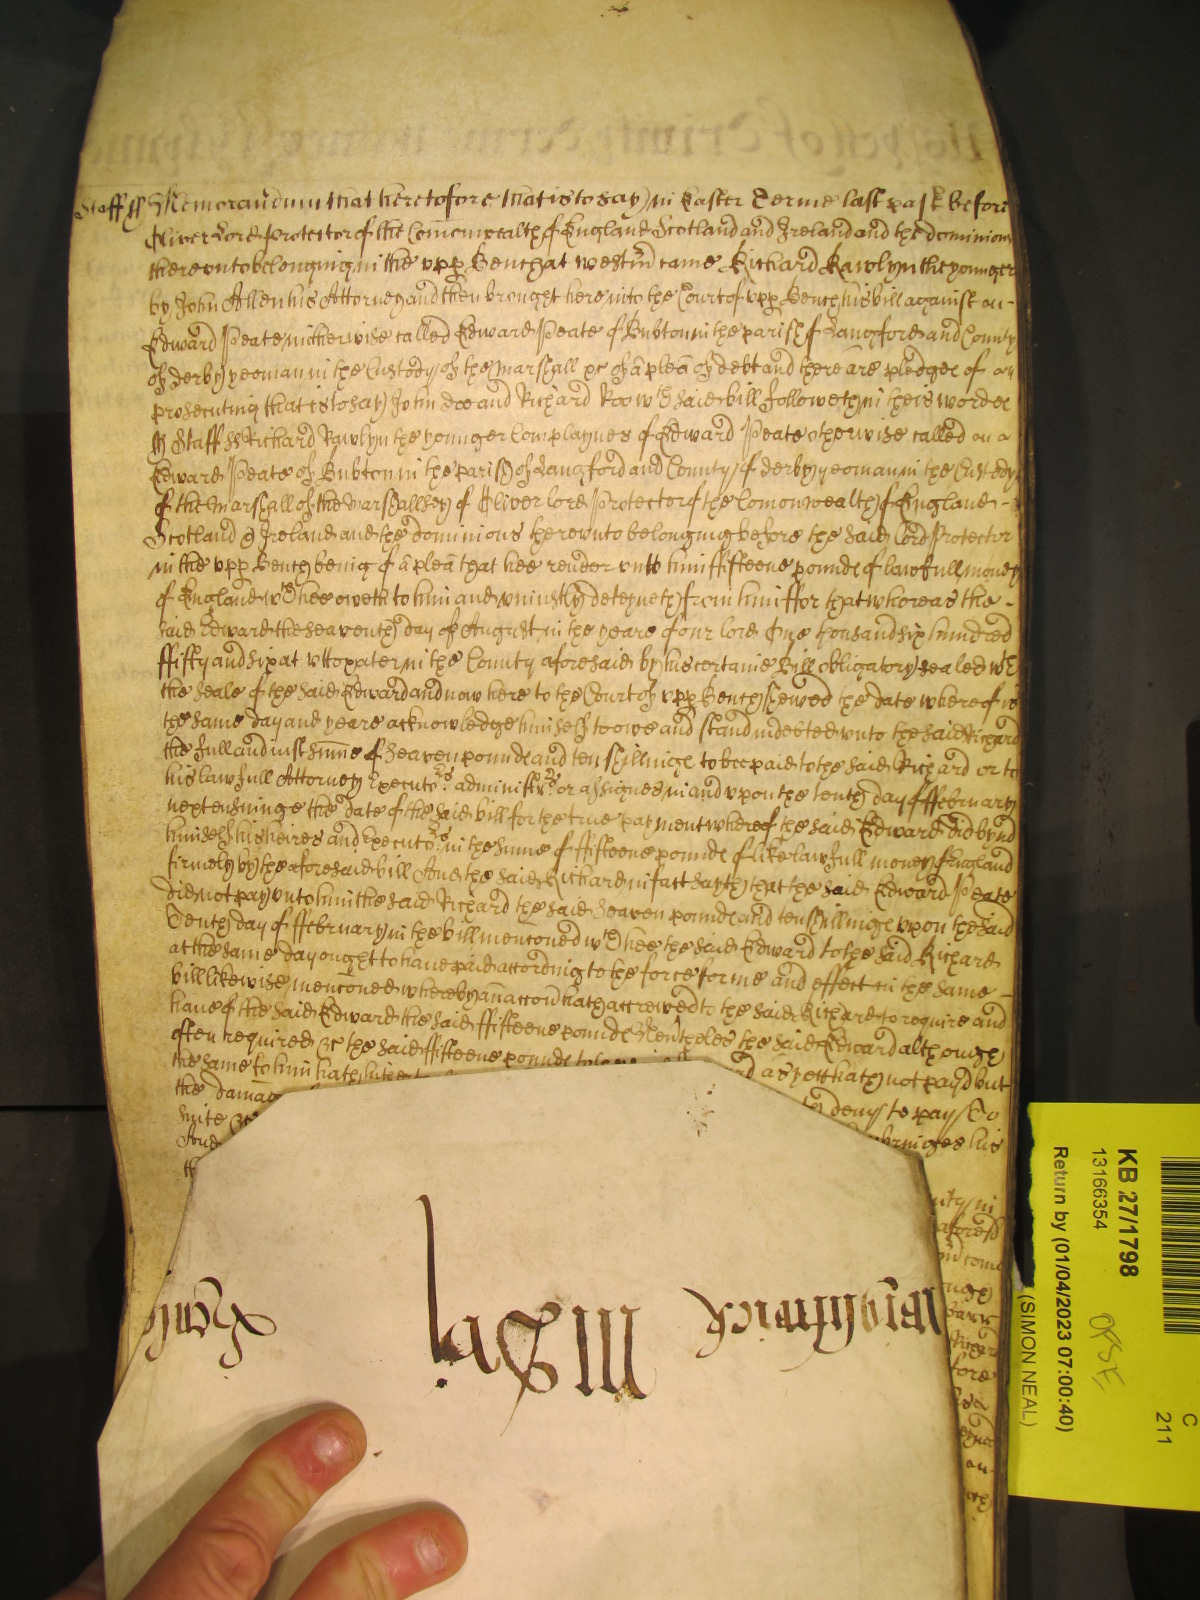 Staff ss Memorandum that heretofore that is to say in Easter Terme last past before
Oliver Lord Protector of the Comonwealth of England Scotland and Ireland and the dominions
thereunto belonging in the upp Bench at Westm came Richard Rawlyn the younger
by John Allen his Attorney and then brought here into the Court of upp Bench his bill against
Edward Peate otherwise called Edward Peate of Bubton in the parish of Langford and County
of derby yeoman in the Custody of the Marshall &c of a plea of debt and there are pledges of
prosecuting that is to say John doe and Richard Roo wch said bill followeth in theis wordes
Staff ss Richard Rawlyn the younger Complaynes of Edward Peate otherwise called
Edward Peate of Bubton in the parish of Langford and County of derby yeoman in the Custody
of the Marshall of the Marshallsey of Oliver lord Protector of the Comonwealth of England
Scotland & Ireland and the dominions thereunto belonging before the said Lord Protector
in the upp Bench being of a plea that hee render unto him fifteene pounds of lawfull money
of England wch hee oweth to him and uniustly deteyneth from him ffor that whereas the
said Edward the seaventh day of August in the yeare of our lord One thousand six hundred
ffifty and six at Uttoxater in the County aforesaid by his certaine Bill obligatory sealed wth
the seale of the said Edward and now here to the Court of upp Bench shewed the date whereof is
the same day and yeare acknowledge himself to owe and stand indebted unto the said Richard
the full and iust sume of Seaven pounds and ten shillings to bee paid to the said Richard or to
his lawfull Attorney Executors administrs or assignes in and upon the tenth day of ffebruary
next ensuinge the date of the said bill for the true payment whereof the said Edward did bynd
himself his heires and Executors in the sume of ffifteene pounds of like lawfull money of England
firmely by the aforesaid bill And the said Richard in fact sayth that the said Edward Peate
did not pay unto him the said Richard the said Seaven pounds and ten shillings upon the said
Tenth day of ffebruary in the bill menconed wch hee the said Edward to the said Richard
at the same day ought to have paid according to the force forme and effect in the same
bill likewise menconed whereby an accon hath accrewed to the said Richard to require and
have of the said Edward the said ffifteene pounds Nevtheles the said Edward although
often required &c the said ffifteene pounds
the same to him hath not payd but
the damag deny to pay To
suite &c bringes his
And
KB 27/1798
13166354
Return by (01/04/2023 07:00:40)
(SIMON NEAL)
C
211